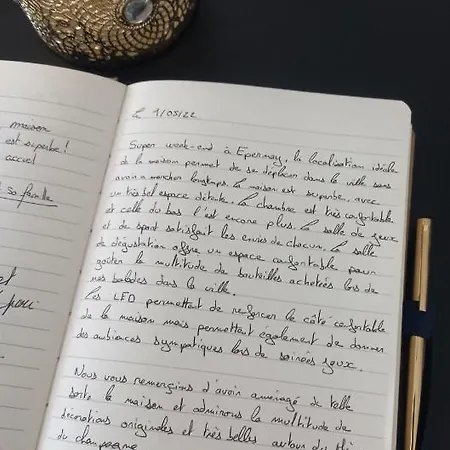 maison
est superbe!
accueil
sa famille
et
Le 1/05/22
Super week-end à Epernay, la localisation idéale
de la maison permet de se déplacer dans la ville sans
avoir à marcher longtemps. La maison est superbe, avec
un très bel espace détente. La chambre est très confortable
et celle du bas l'est encore plus. La salle de jeux
et de sport satisfait les envies de chacun. La salle
de dégustation offre un espace confortable pour
goûter la multitude de bouteilles achetées lors de
nos balades dans la ville.
Les LED permettent de renforcer le côté confortable
de la maison mais permettent également de donner
des ambiances sympatiques lors de soirées jeux.
Nous vous remercions d'avoir aménagé de telle
sorte la maison et admirons la multitude de
décorations originales et très belles autour du
du champagne